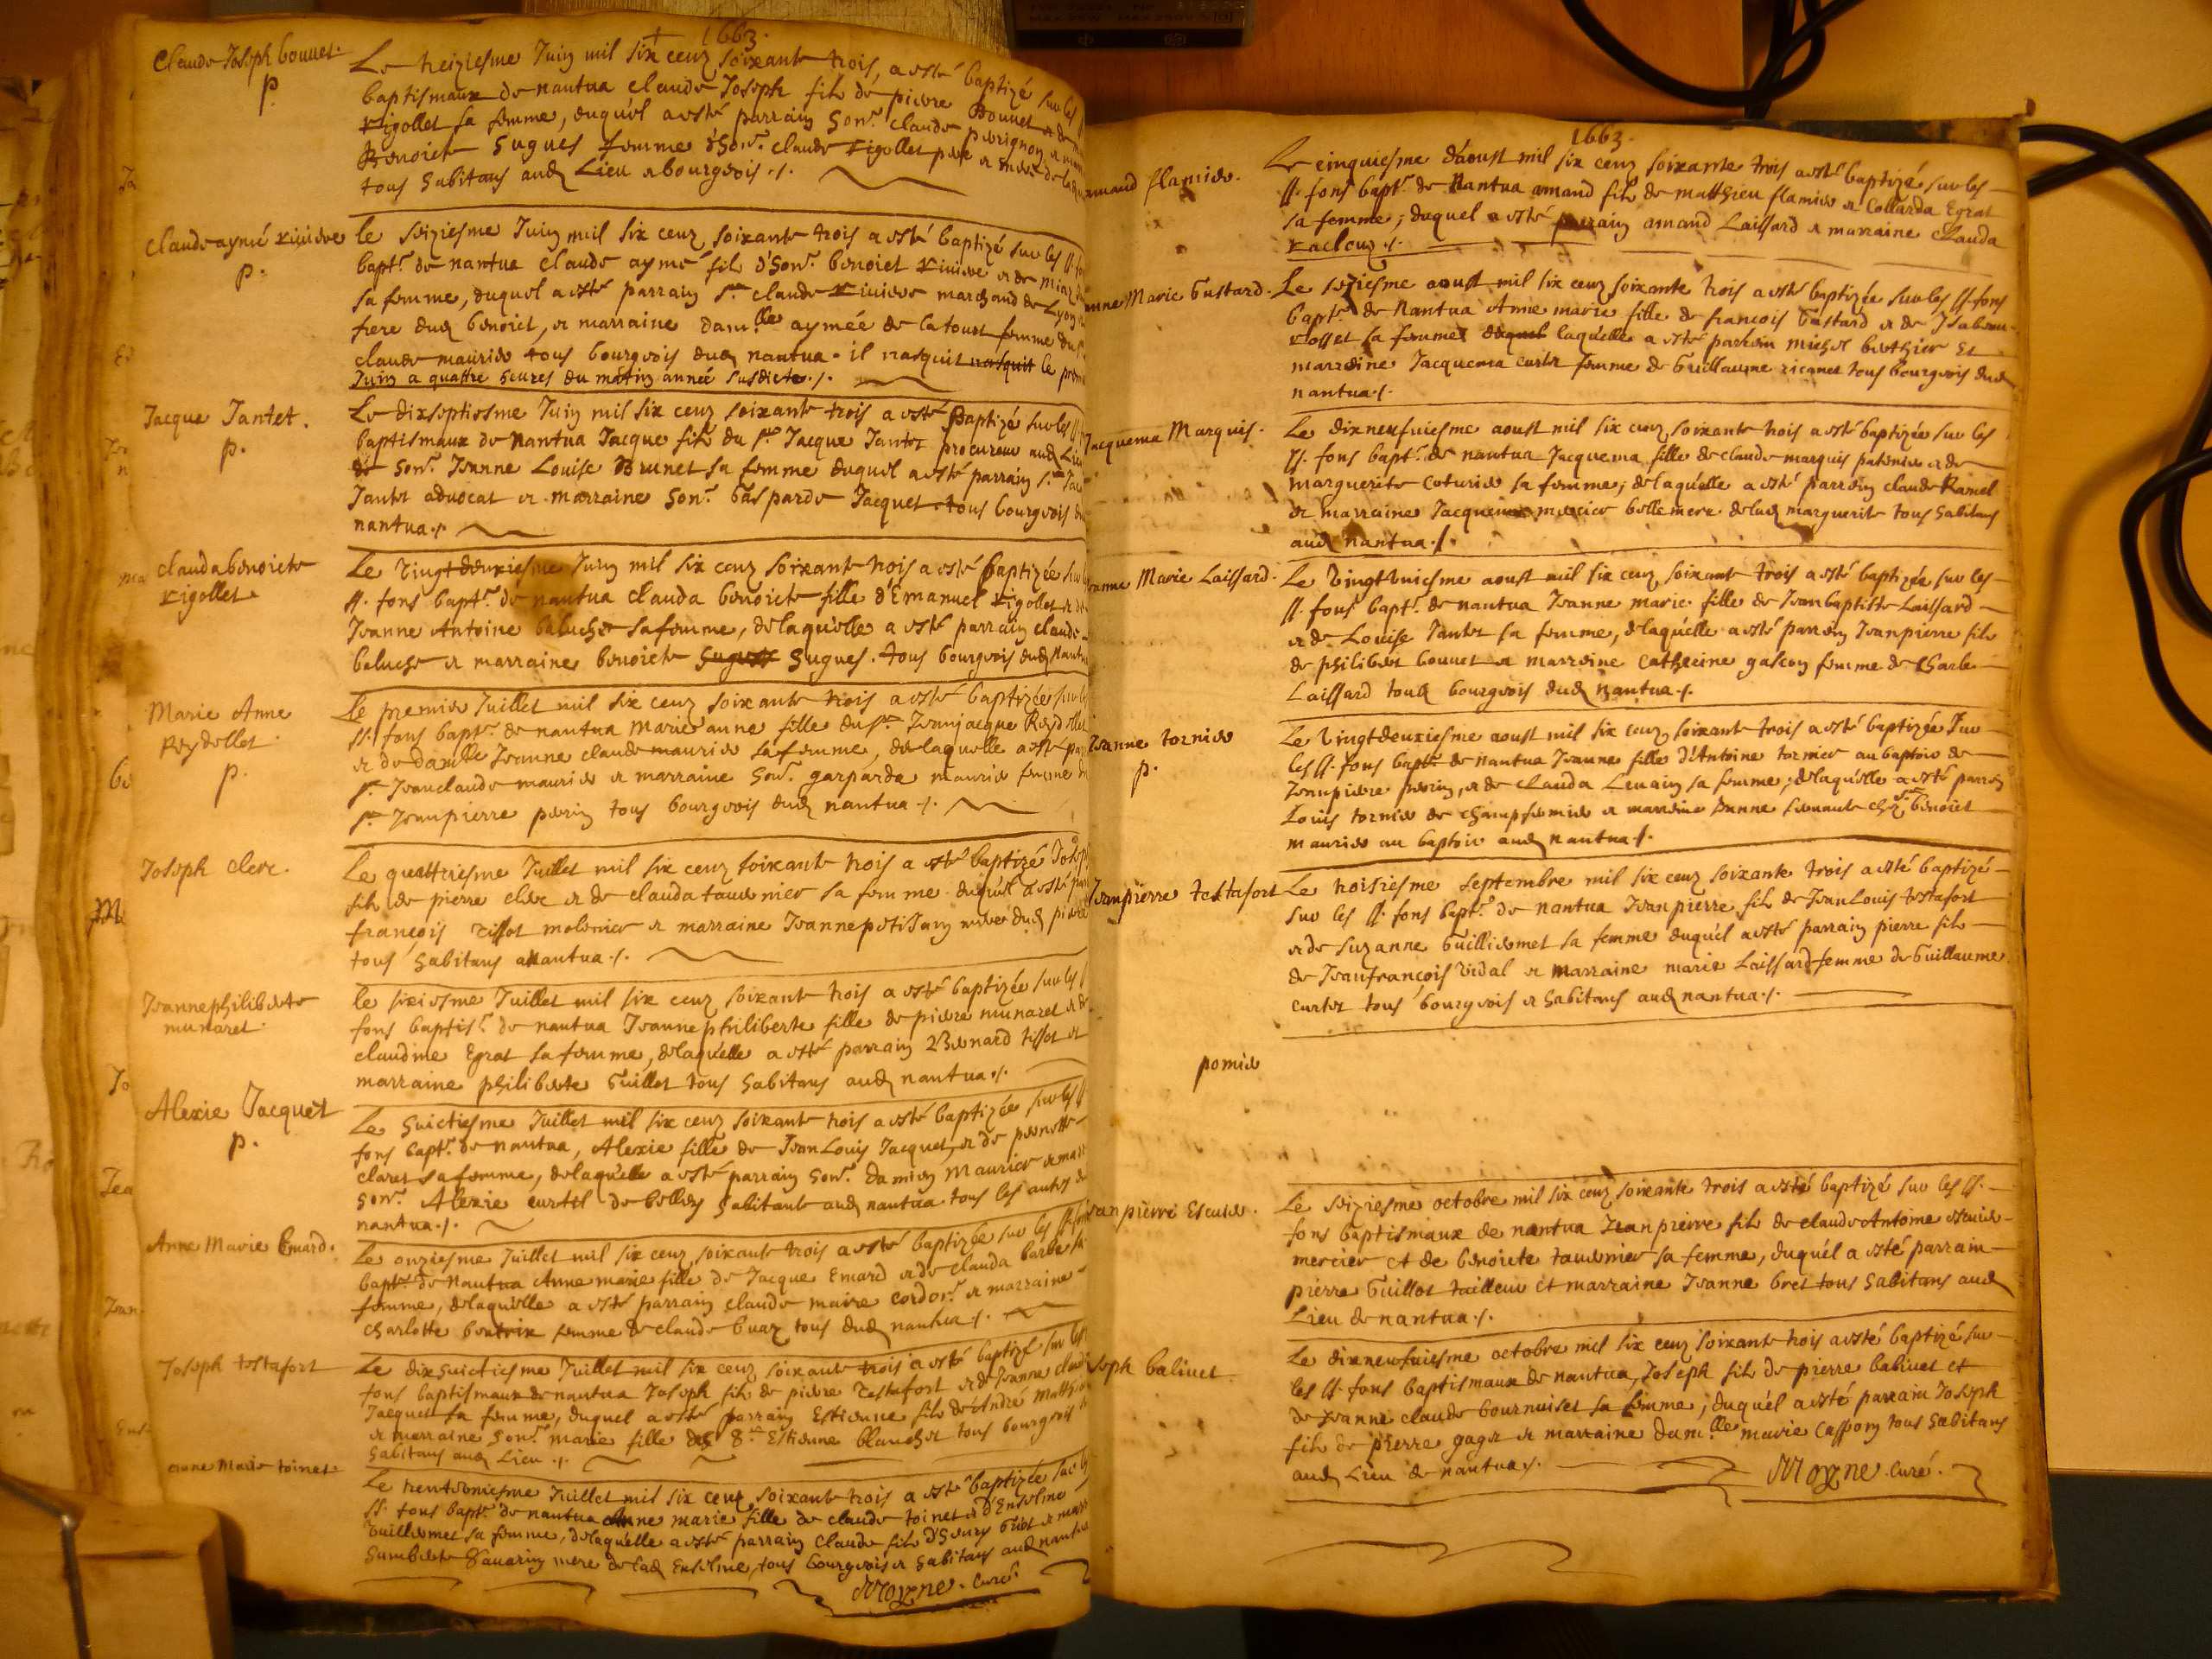 1663.
Claude Joseph bouuet.
p.
Le treiziesme Juin mil six cenz soixante trois, a esté baptizé sur les
baptismaux de nantua claude Joseph fils de pierre Bouuet et de
Rigollet sa femme, duquel a esté parrain hon.^r claude perrignon et
Benoiete hugues femme d'hon.^r claude Rigollet pere et mere de la
tous habitans aud Lieu et bourgeois ./.
claude aymé Riuiere
p.
le seiziesme Juin mil six cenz soixante trois a esté baptizé sur les ss. fo
bapt.^x de nantua claude aymé fils d'hon.^r benoiet Riuiere et de
sa femme, duquel a esté parrain s.^r claude Riuiere marchand de Lyon
frere dud benoiet, et marraine dam.^lle aymée de la tour femme du s.^r
claude maurier tous bourgeois dud nantua. il nasquit nasquit le prem
Juin a quattre heures du matin année susdicte ./.
Jacque Jantet.
p.
Le dixseptiesme Juin mil six cenz soixante trois a esté Baptizé sur les ss
baptismaux de Nantua Jacque fils du s.^r Jacque Jantet procureur aud Lieu
de hon.^e Jeanne Louise Brunet sa femme duquel a esté parrain s.^r Jac
Jantet aduocat et marraine hon.^e Gasparde Jacquet tous bourgeois du
nantua ./.
clauda benoiete
Rigollet
Le Vingtdeuxiesme Juin mil six cenz soixante trois a esté baptizée sur
ss. fons bapt.^x de nantua clauda benoiete fille d'Emanuel Rigollet et de
Jeanne Antoine baluche sa femme, de laquelle a esté parrain claude
baluche et marraine benoiete hugues hugues. tous bourgeois dud Nantua
Marie Anne
Reydellet
p.
Le premier Juillet mil six cenz soixante trois a esté baptizée sur le
ss. fons bapt.^x de nantua Marie anne fille du s.^r Jeanjacque Reydellet
et de dam^lle Jeanne claude maurier sa femme, de laquelle a esté par
s.^r Jeanclaude maurier et marraine hon.^e gasparda maurier femme de
s.^r Jeanpierre perin tous bourgeois dud nantua ./.
Joseph clerc.
Le quattriesme Juillet mil six cenz soixante trois a esté baptizé Joseph
fils de pierre clerc et de clauda tauernier sa femme duquel a esté par
françois Tissot molonier et marraine Jeanne petit Jean mere dud pierre
tous habitans a Nantua ./.
Jeannephiliberte
munaret.
le sixiesme Juillet mil six cenz soixante trois a esté baptizée sur les s
fons baptis.^x de nantua Jeanne philiberte fille de pierre munaret et de
claudine Egrat sa femme, de laquelle a esté parrain Bernard tissot et
marraine philiberte Guillot tous habitans aud nantua ./.
Alexie Jacquet
p.
Le huictiesme Juillet mil six cenz soixante trois a esté baptizée sur les s
fons bapt.^x de nantua, Alexie fille de Jean Louis Jacquet, et de pernette
claret sa femme, de laquelle a esté parrain hon.^r Damien Maurier et marr
hon.^e Alexie curtet de belley habitante aud nantua tous les autres du
nantua ./.
Anne Marie Emard.
Le onziesme Juillet mil six cenz soixante trois a esté baptizée sur les ss. fons
bapt.^x de Nantua Anne marie fille de Jacque Emard et de clauda barbe sa
femme, de laquelle a esté parrain claude maire cordon.^r et marraine
charlotte beatrix femme de claude buaz tous dud nantua ./.
Joseph testafort
Le dixhuictiesme Juillet mil six cenz soixante trois a esté baptizé sur les
fons baptismaux de nantua Joseph fils de pierre Testafort et de Jeanne claud
Jacquet sa femme, duquel a esté parrain Estienne fils de André Matthieu
et marraine hon.^e marie fille de s.^r Estienne blanchet tous bourgeois
habitans aud Lieu ./.
anne marie toinet
Le trentuniesme Juillet mil six cenz soixante trois a esté baptizée sur les
ss. fons bapt.^x de nantua Anne marie fille de claude toinet et d'Enselme
Guillermet sa femme, de laquelle a esté parrain claude fils d'henry Griot et marr
humberte Sauarin mere de lad Enselme, tous bourgeois et habitans aud nantua
Moyne. Curé.
1663.
amand flamier.
Le cinquiesme d'aoust mil six cenz soixante trois a esté baptizé sur les
ss. fons bapt.^x de Nantua amand fils de matthieu flamier et Collarda Egrat
sa femme; duquel a esté parrain amand Laissard et marraine clauda
Racloz ./.
anne Marie Gustard.
Le seziesme aoust mil six cenz soixante trois a esté baptizée sur les ss. fons
bapt.^x de Nantua Anne marie fille de francois Gustard et de Isabeau
Rosset sa femme duquel laquelle a esté parrain michel berthier Et
marreine Jacquema curtet femme de Guillaume ricanet tous bourgeois dud
nantua ./.
Jacquema Marquis.
Le dixneufuiesme aoust mil six cenz soixante trois a esté baptizée sur les
ss. fons bapt.^x de nantua Jacquema fille de claude marquis patenier et de
marguerite Coturier sa femme; de laquelle a esté parrein claude Ramel
et marraine Jacquema mercier bellemere de lad marguerite tous habitans
aud nantua ./.
Jeanne Marie Laissard.
Le Vingtuniesme aoust mil six cenz soixante trois a esté baptizée sur les
ss. fons bapt.^x de nantua Jeanne marie fille de Jeanbaptiste Laissard
et de Louise Jantet sa femme, de laquelle a esté parrein Jeanpierre fils
de philibert bouuet et marreine Catherine gascon femme de Charle
Laissard toud bourgeois dud nantua ./.
Jeanne tornier
p.
Le Vingtdeuxiesme aoust mil six cenz soixante trois a esté baptizée sur
les ss. fons bapt.^x de nantua Jeanne fille d'Antoine tornier au baptoir de
Jeanpierre perrin, et de clauda Leuain sa femme; de laquelle a esté parrein
Louis tornier de champfromier et marreine Jeanne seruante chez s.^r benoiet
maurier au baptoir aud nantua ./.
Jeanpierre testafort
Le troisiesme septembre mil six cenz soixante trois a esté baptizé
sur les ss. fons bapt.^x de nantua Jean pierre fils de Jean Louis testafort
et de Suzanne Guilliermet sa femme duquel a esté parrain pierre fils
de Jeanfrançois Vidal et marraine marie Laissard femme de Guillaume
curtet tous bourgeois et habitans aud nantua ./.
pomier
Jean pierre Escuier.
Le seiziesme octobre mil six cenz soixante trois a esté baptizé sur les ss.
fons baptismaux de nantua Jean pierre fils de claude Antoine escuier
mercier et de benoiete tauernier sa femme, duquel a esté parrain
pierre Guillot tailleur et marraine Jeanne bret tous habitans aud
Lieu de nantua ./.
Joseph baliuet
Le dixneufuiesme octobre mil six cenz soixante trois a esté baptizé sur
les ss. fons baptismaux de nantua, Joseph fils de pierre baliuet et
de Jeanne claude bournuiset sa femme; duquel a esté parrain Joseph
fils de pierre gaget et marraine dam.^lle marie Casson tous habitans
aud Lieu de nantua ./.
Moyne. Curé.